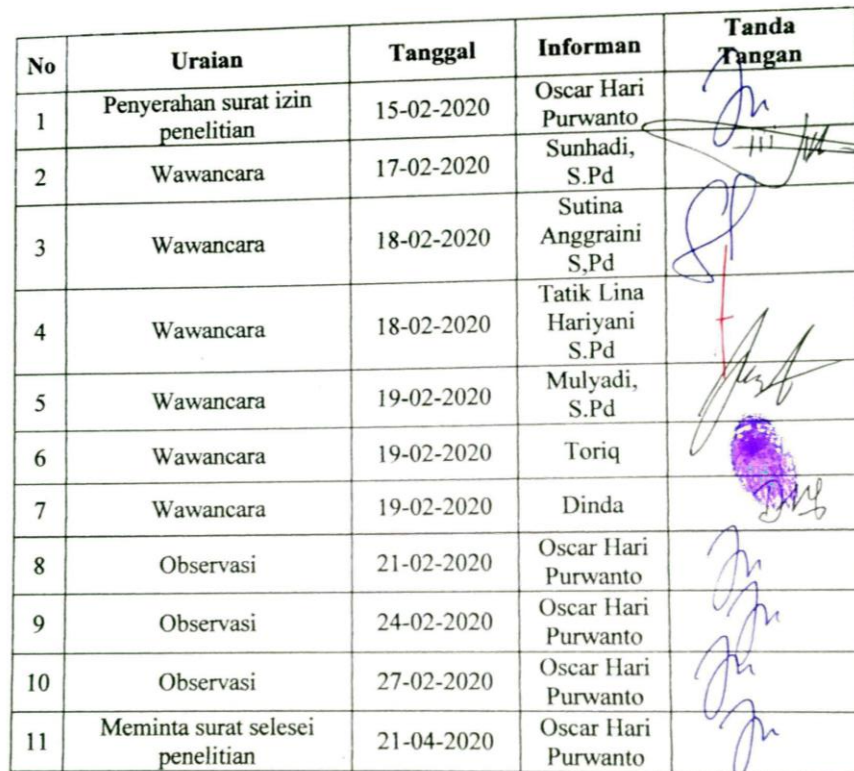 No Uraian Tanggal Informan Tanda
Tangan
1 Penyerahan surat izin
penelitian 15-02-2020 Oscar Hari
Purwanto
2 Wawancara 17-02-2020 Sunhadi,
S.Pd
3 Wawancara 18-02-2020 Sutina
Anggraini
S,Pd
4 Wawancara 18-02-2020 Tatik Lina
Hariyani
S.Pd
5 Wawancara 19-02-2020 Mulyadi,
S.Pd
6 Wawancara 19-02-2020 Toriq
7 Wawancara 19-02-2020 Dinda
8 Observasi 21-02-2020 Oscar Hari
Purwanto
9 Observasi 24-02-2020 Oscar Hari
Purwanto
10 Observasi 27-02-2020 Oscar Hari
Purwanto
11 Meminta surat selesei
penelitian 21-04-2020 Oscar Hari
Purwanto